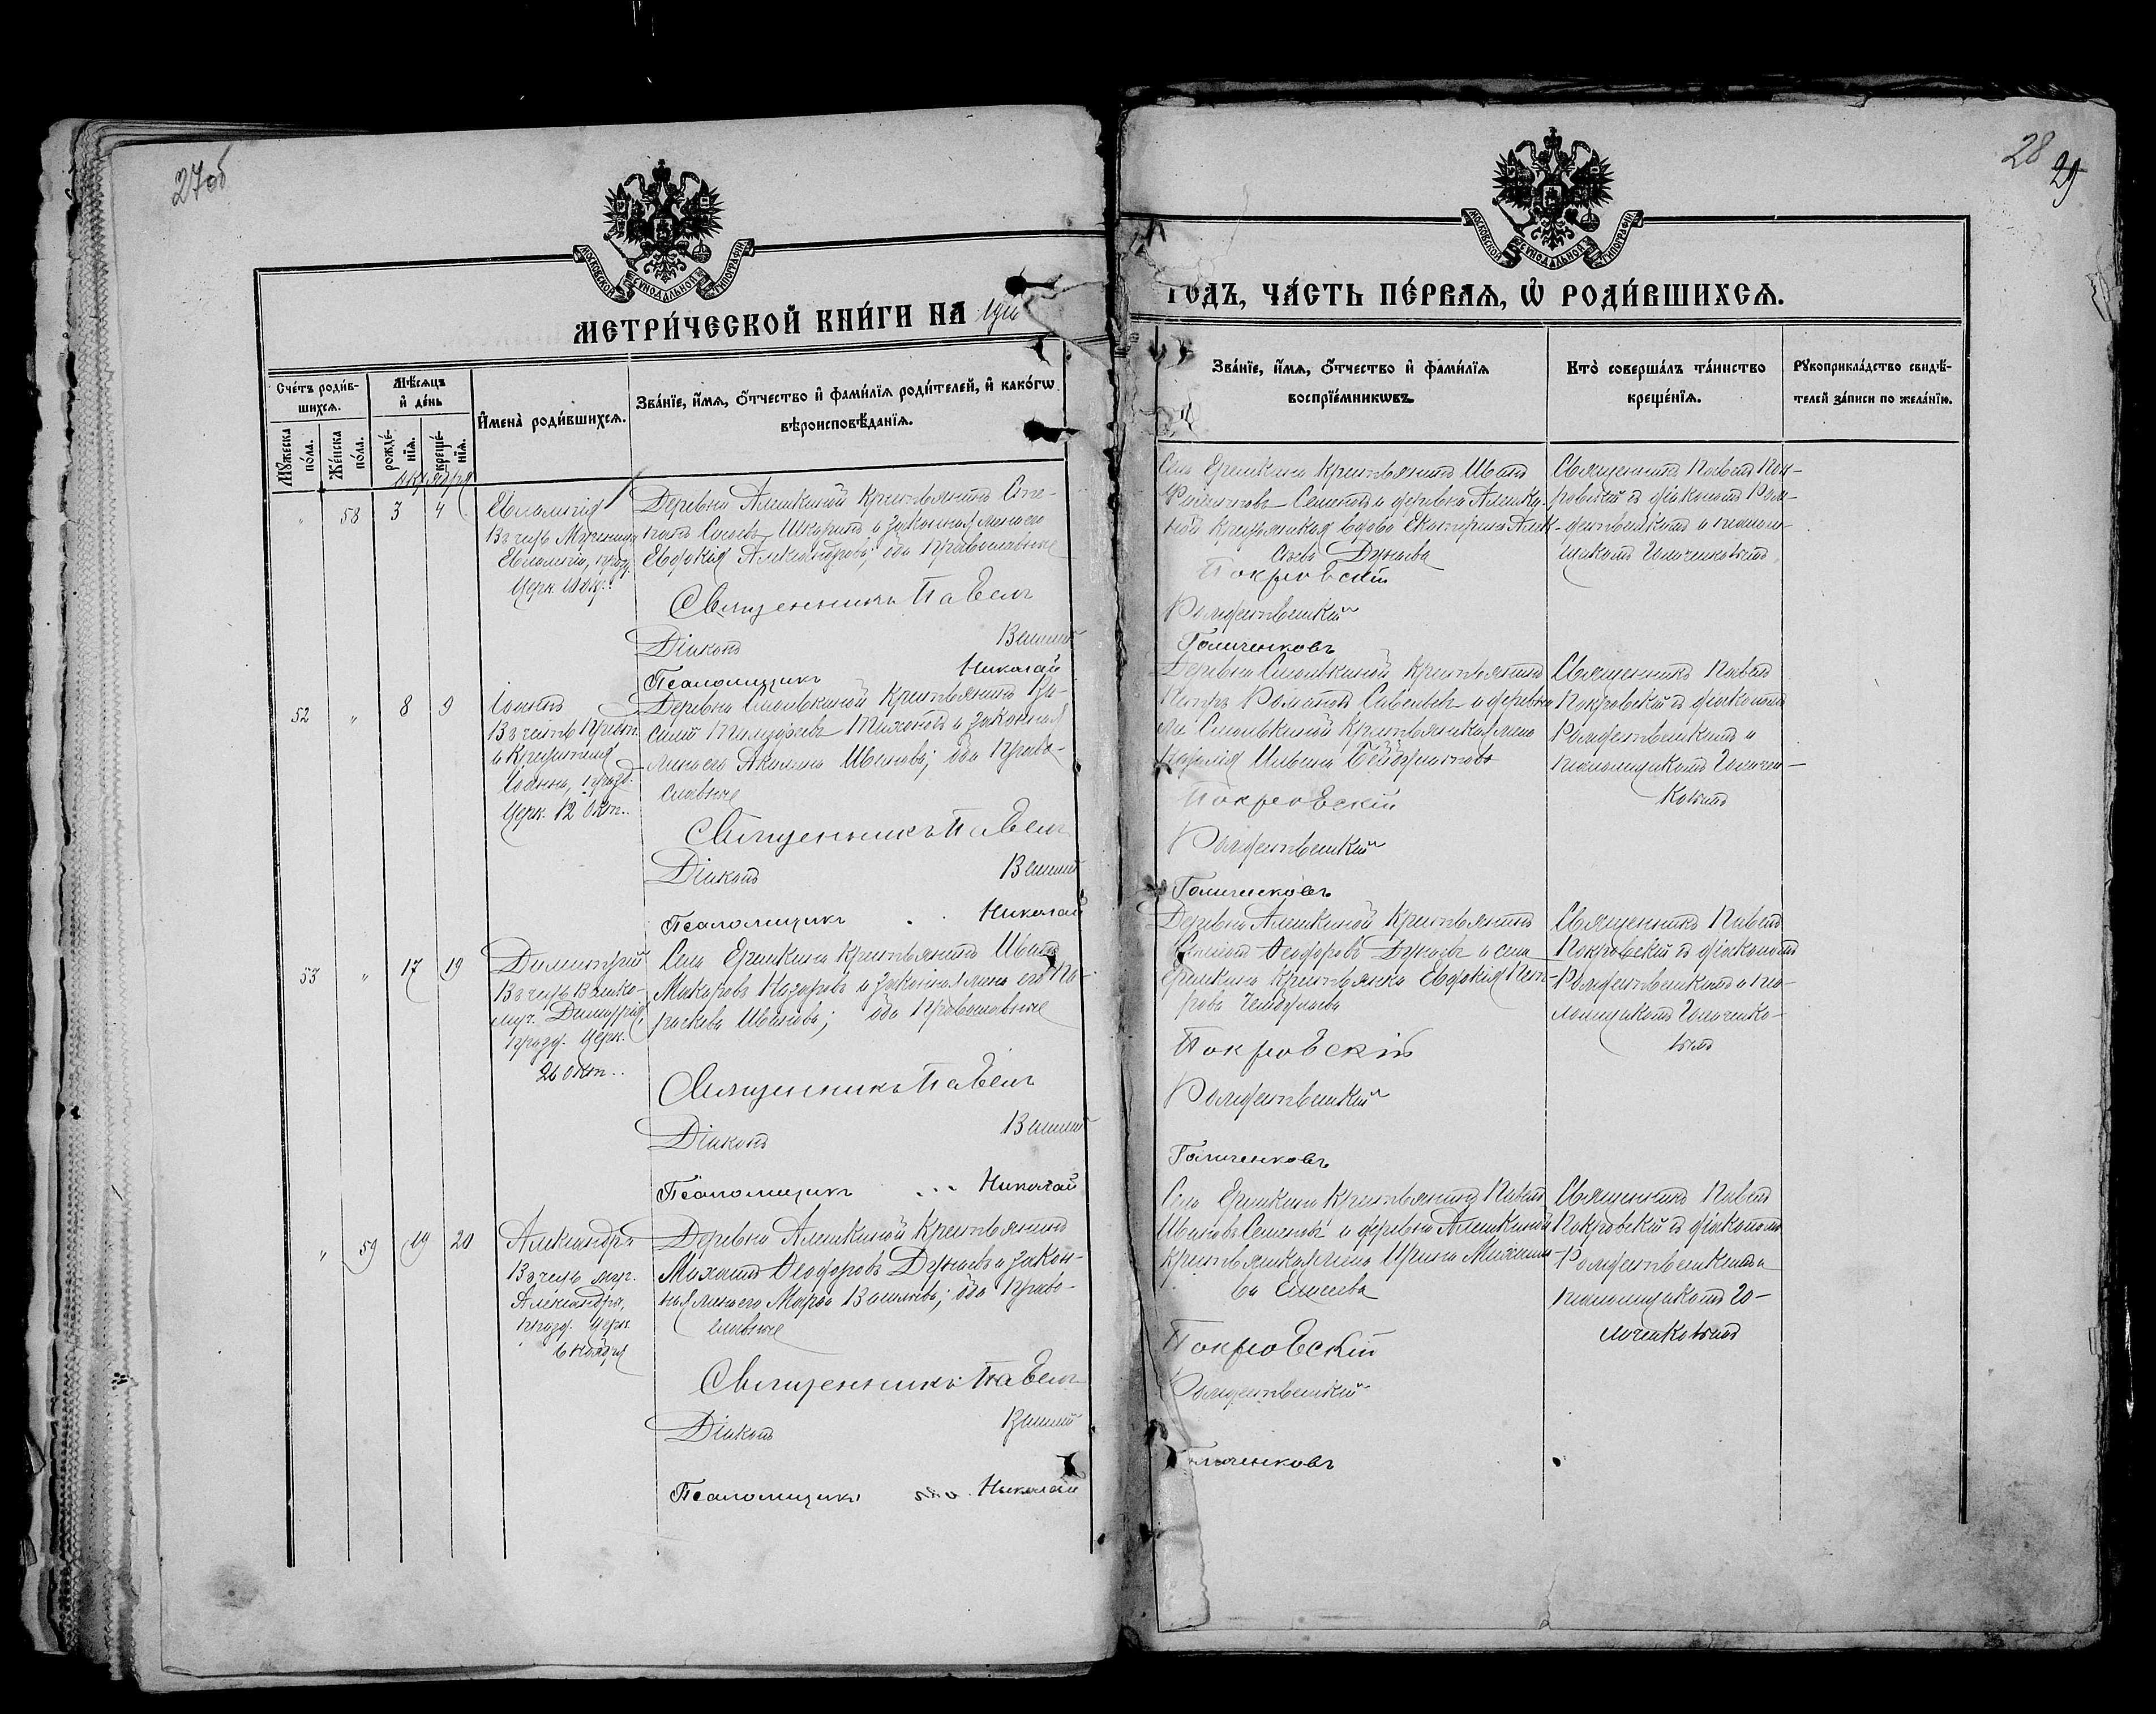 27об
28
29
МОСКОВСКОЙ СѴНОДАЛЬНОЙ ТИПОГРАФІИ
МОСКОВСКОЙ СѴНОДАЛЬНОЙ ТИПОГРАФІИ
МЕТРИ́ЧЕСКОЙ КНИ́ГИ НА
ГОДЪ, ЧА́СТЬ ПЕ́РВАѦ, Ѡ РОДИ́ВШИХСѦ.
Сче́тъ роди́в-
шихсѧ.
Мѣ́сѧцъ
и҆ де́нь
Мꙋ́жеска
по́ла.
Же́нска
по́ла.
рожде́-
нїѧ.
креще́-
нїѧ.
И҆мена̀ роди́вшихсѧ.
Зва́нїе, и҆́мѧ, ѻ҆́тчество и҆ фами́лїѧ роди́телей, и҆ како́гѡ
вѣроисповѣ́данїѧ.
Зва́нїе, и҆́мѧ, ѻ҆́тчество и҆ фами́лїѧ
воспрїе́мникѡвъ.
Кто̀ соверша́лъ та́инство
креще́нїѧ.
Рꙋкоприкла́дство свидѣ́-
телей за́писи по жела́нїю.
Октября
" 58 3 4
Евлампія
Въ честь Мученицы
Евлампіи, празд.
Церк. 10 Окт.
Деревни Алешкиной крестьянинъ Сте-
панъ и законная жена его
Евдокія Александрова; оба православные
Священникъ Павелъ
Діаконъ Василій
Псаломщикъ Николай
Села Ерешкина крестьянинъ Иванъ
и деревни Алешки-
ной крестьянская вдова Екатерина Алек-
сѣева Дунаева
Покровскій
Рождественскій
Голиченковъ
Священникъ Павелъ Пок-
ровскій съ діакономъ Рож-
дественскимъ и псалом-
щикомъ Голиченковымъ
52 " 8 9
Іоаннъ
Въ честь
и Крестителя
Іоанна, празд.
Церк. 12 Окт.
Деревни Смолькиной крестьянинъ Ва-
силій Тихоновъ и законная
жена его Акилина Иванова; оба право-
славные
Священникъ Павелъ
Діаконъ Василій
Псаломщикъ Николай
Деревни Смолькиной крестьянинъ
Петръ Романовъ Савельевъ и деревни
Смолькиной крестьянская жена
Покровскій
Рождественскій
Голиченковъ
Священникъ Павелъ
Покровскій съ діакономъ
Рождественскимъ и
псаломщикомъ Голичен-
ковымъ
53 " 17 19
Димитрій
Въ честь Велико-
муч. Димитрія,
празд. Церк.
26 Окт.
Села Ерешкина крестьянинъ Иванъ
Макаровъ Назаровъ и законная жена его Па-
раскева Иванова; оба православные
Священникъ Павелъ
Діаконъ Василій
Псаломщикъ Николай
Деревни Алешкиной крестьянинъ
Ѳеодоровъ Дунаевъ и села
Ерешкина крестьянка Евдокія Пет-
рова
Покровскій
Рождественскій
Голиченковъ
Священникъ Павелъ
Покровскій съ діакономъ
Рождественскимъ и пса-
ломщикомъ Голиченко-
вымъ
" 59 19 20
Александра
Въ честь муч.
Александры,
празд. Церк.
6 ноября
Деревни Алешкиной крестьянинъ
Михаилъ Ѳеодоровъ Дунаевъ и закон-
ная жена его Марѳа Васильева; оба право-
славные
Священникъ Павелъ
Діаконъ Василій
Псаломщикъ Николай
Села Ерешкина крестьянинъ Павелъ
Ивановъ Семеновъ и деревни Алешкиной
крестьянская жена Ирина Михайло-
ва Елисеева
Покровскій
Рождественскій
Голиченковъ
Священникъ Павелъ
Покровскій съ діакономъ
Рождественскимъ и
псаломщикомъ Го-
личенковымъ